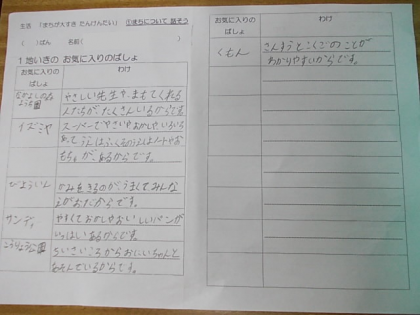 生活 「まちが大すき たんけんたい」 ①まちについて 話そう
( )ばん 名前( )
1 地いきの お気に入りのばしょ
お気に入りの
ばしょ
わけ
やさしい先生や、まもってくれる
人たちが、たくさんいるからです
イズミヤ
スーパーでやさいやおかしやいろいろ
おもちゃが、あるからです。
びよういん
かみをきるのが、うまくてみんな
えがおだからです。
サンディ
やすくておかしやおいしいパンが
いっぱいあるからです。
ちいさいころからおにいちゃんと
あそんでいるからです。
お気に入りの
ばしょ
わけ
くもん
さんすうとこくごのことが
わかりやすいからです。